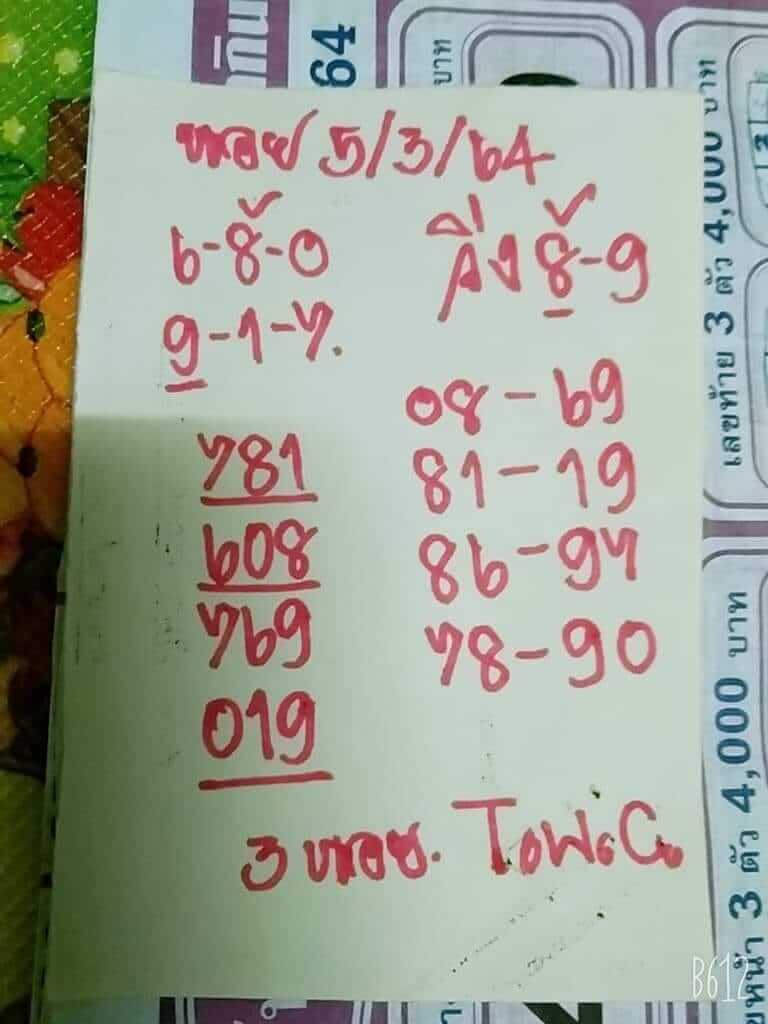 หอย 5/3/64
6-8-0
วิ่ง 8-9
9-1-7.
781
608
769
019
08-69
81-19
86-97
78-90
3 หอย.
กิน
64
บาท
เลขท้าย 3 ตัว 4,000 บาท
3 ตัว 4,000 บาท
B612